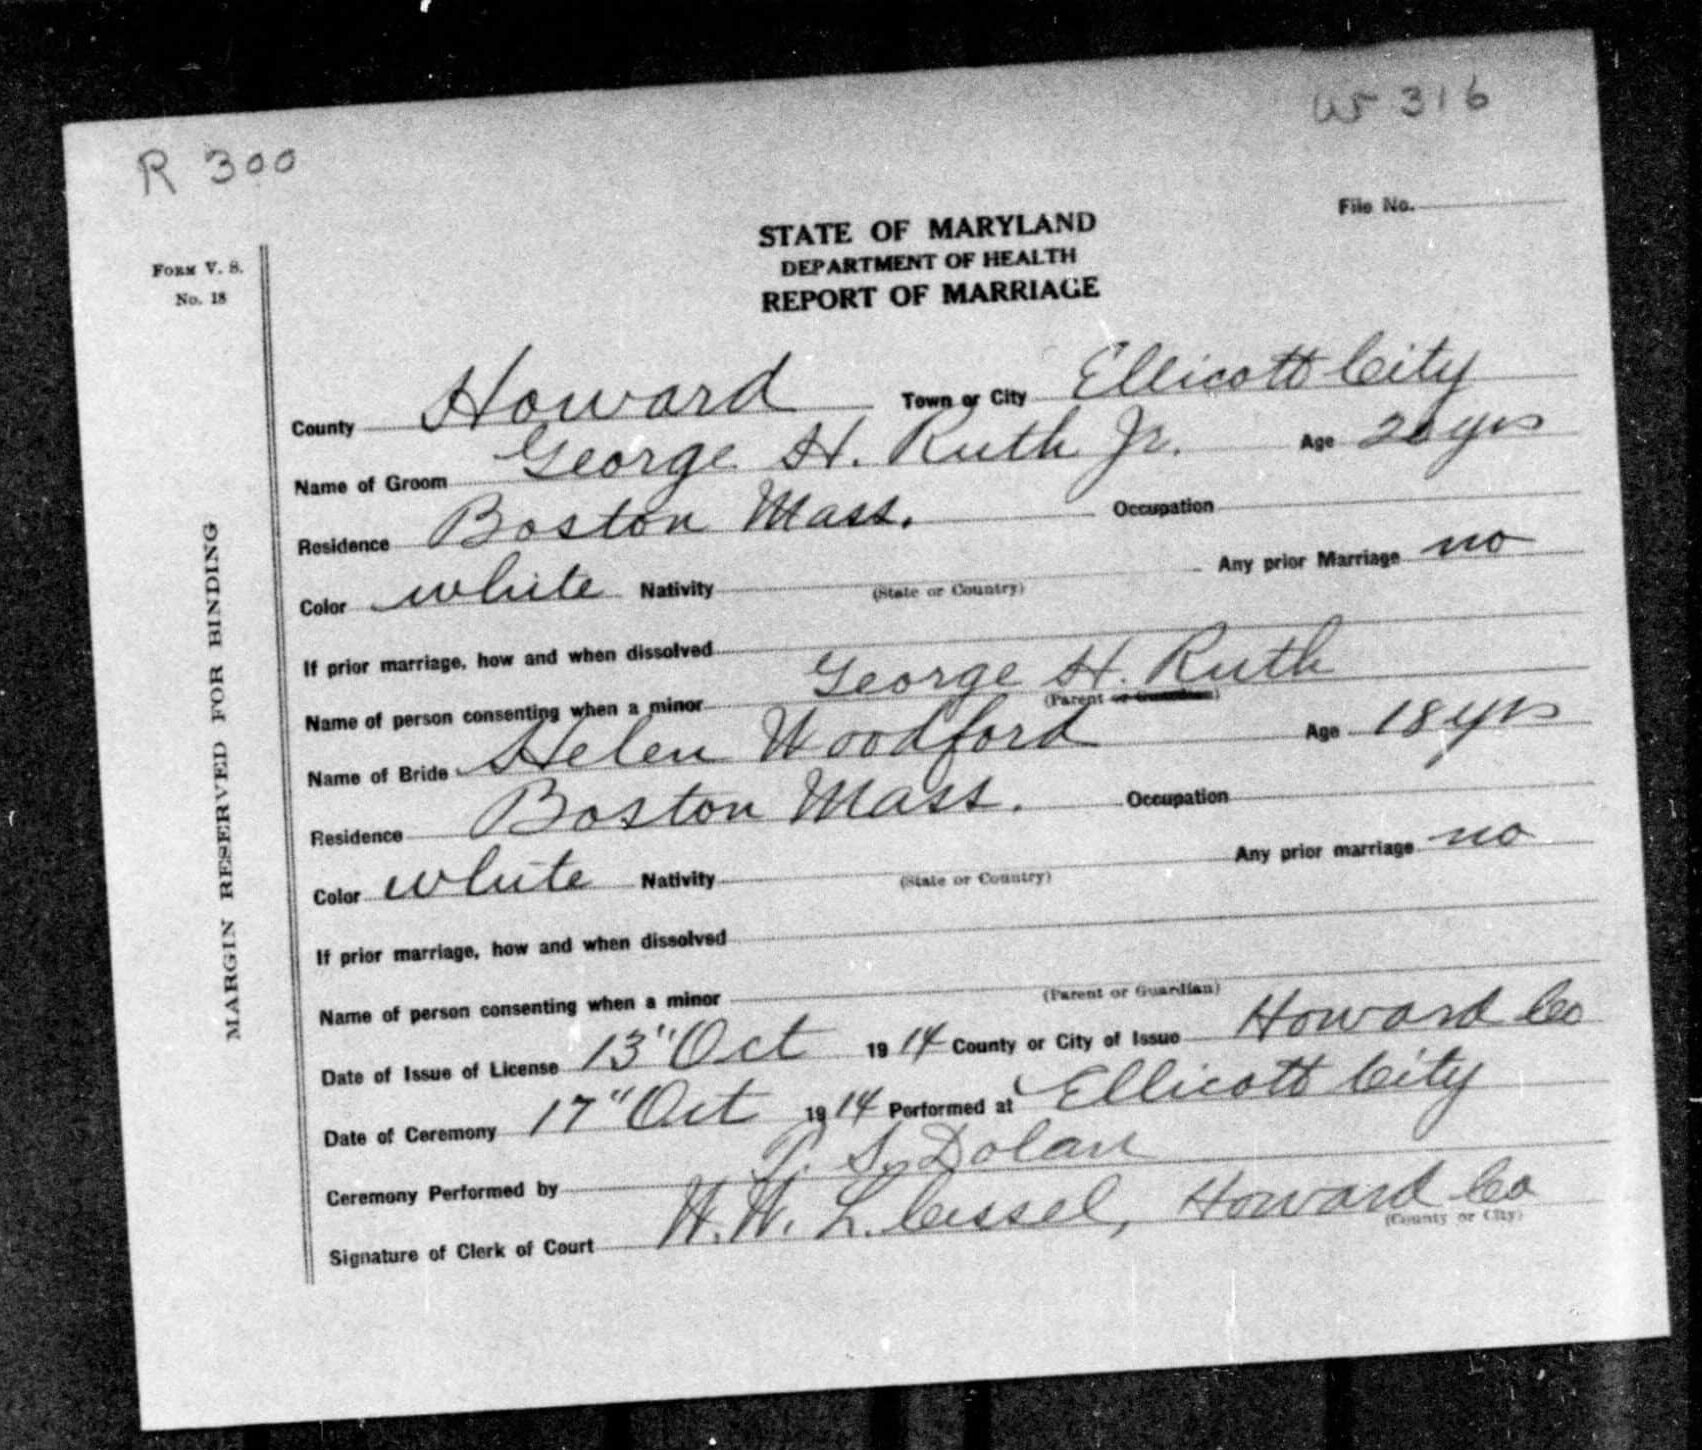 W 316
R 300
File No.
STATE OF MARYLAND
DEPARTMENT OF HEALTH
REPORT OF MARRIAGE
FORM V. S.
No. 18
MARGIN RESERVED FOR BINDING
County Howard Town or City Ellicott City
Name of Groom George H. Ruth Jr. Age 20 yrs
Residence Boston Mass. Occupation
Color white Nativity (State or Country) Any prior Marriage no
If prior marriage, how and when dissolved
Name of person consenting when a minor George H. Ruth (Parent or Guardian)
Name of Bride Helen Woodford Age 18 yrs
Residence Boston Mass. Occupation
Color white Nativity (State or Country) Any prior marriage no
If prior marriage, how and when dissolved
Name of person consenting when a minor (Parent or Guardian)
Date of Issue of License 13" Oct 1914 County or City of Issue Howard Co
Date of Ceremony 17" Oct 1914 Performed at Ellicott City
Ceremony Performed by S. Dolan
Signature of Clerk of Court W. W. L. Cissel, Howard Co (County or City)